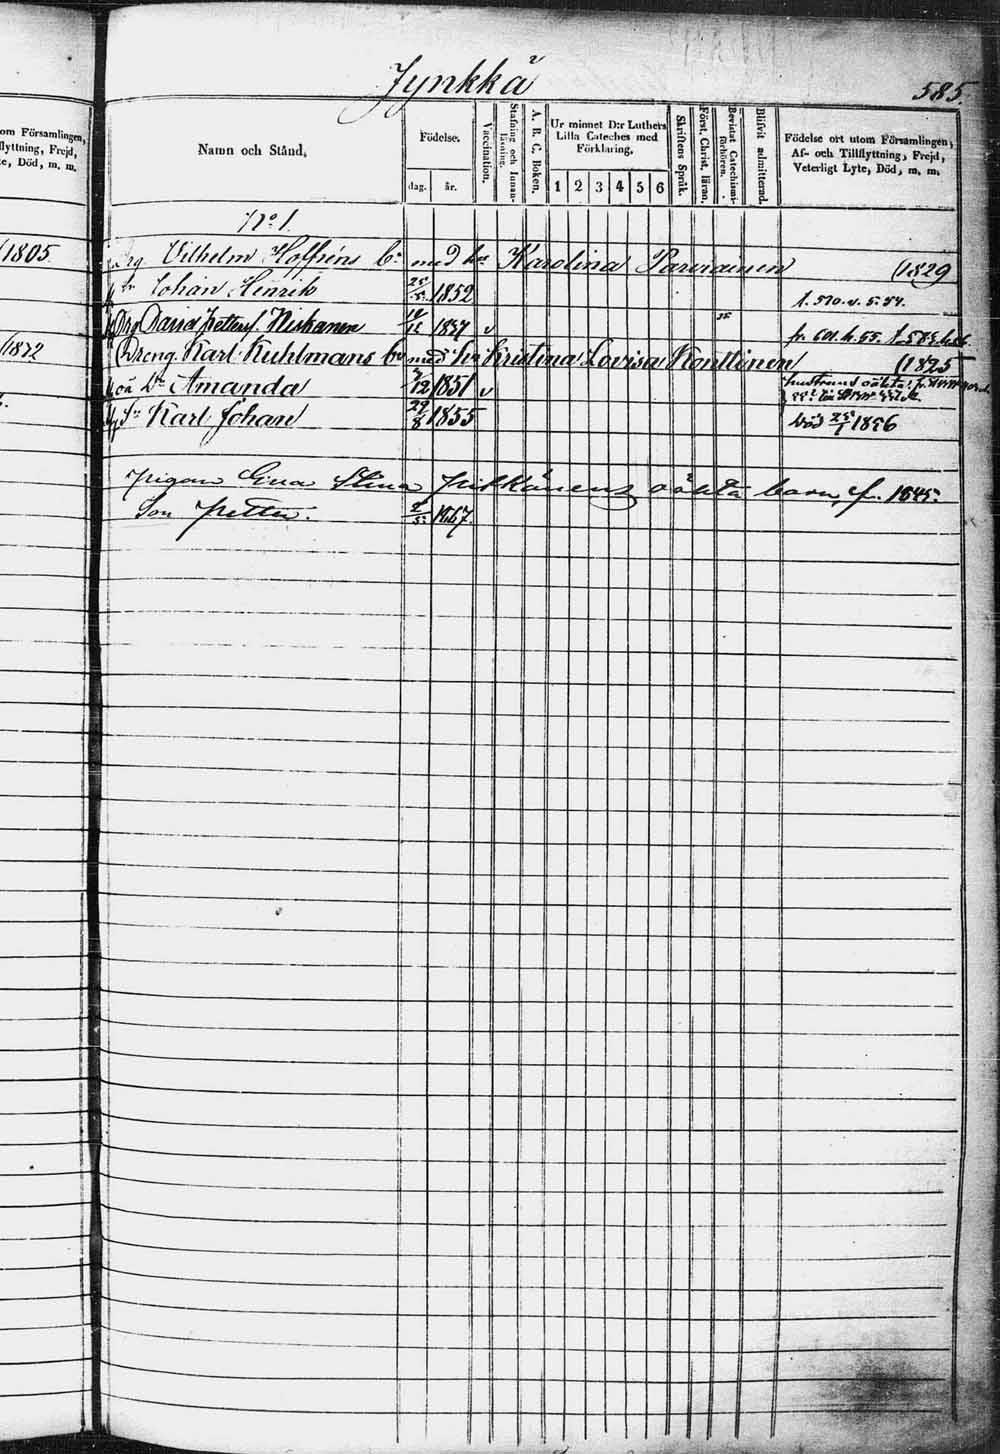 Jynkkä
585.
om Församlingen,
flyttning, Frejd,
te, Död, m. m.
Namn och Stånd,
Födelse.
dag. år.
Vaccination.
Stafning och Innan-
läsning.
A. B. C. Boken.
Ur minnet D:r Luthers
Lilla Cateches med
Förklaring,
1 2 3 4 5 6
Skriftens Språk.
Först. Christ. läran.
Bevistat Catechismi-
förhören.
Blifvit admitterad.
Födelse ort utom Församlingen,
Af- och Tillflyttning, Frejd,
Veterligt Lyte, Död, m. m.
No 1.
(1805.
Vilhelm Hoffréns med Karolina Parviainen (1829
Johan Henrik 25/5 1852 f. 570. v. 5. 54.
David Petterss. Niskanen 1837 v fr. 601. h. 55.
(1872
Dreng. Karl Kuhlmans med Kristina Lovisa Konttinen (1825
oä Dr Amanda /12 1851 v hustruns oäkta
Sn Karl Johan 29/8 1855 död 25/1 1856
Pigan Stina oäkta barn, f. 1845.
Son Petter. 2/5 1867.